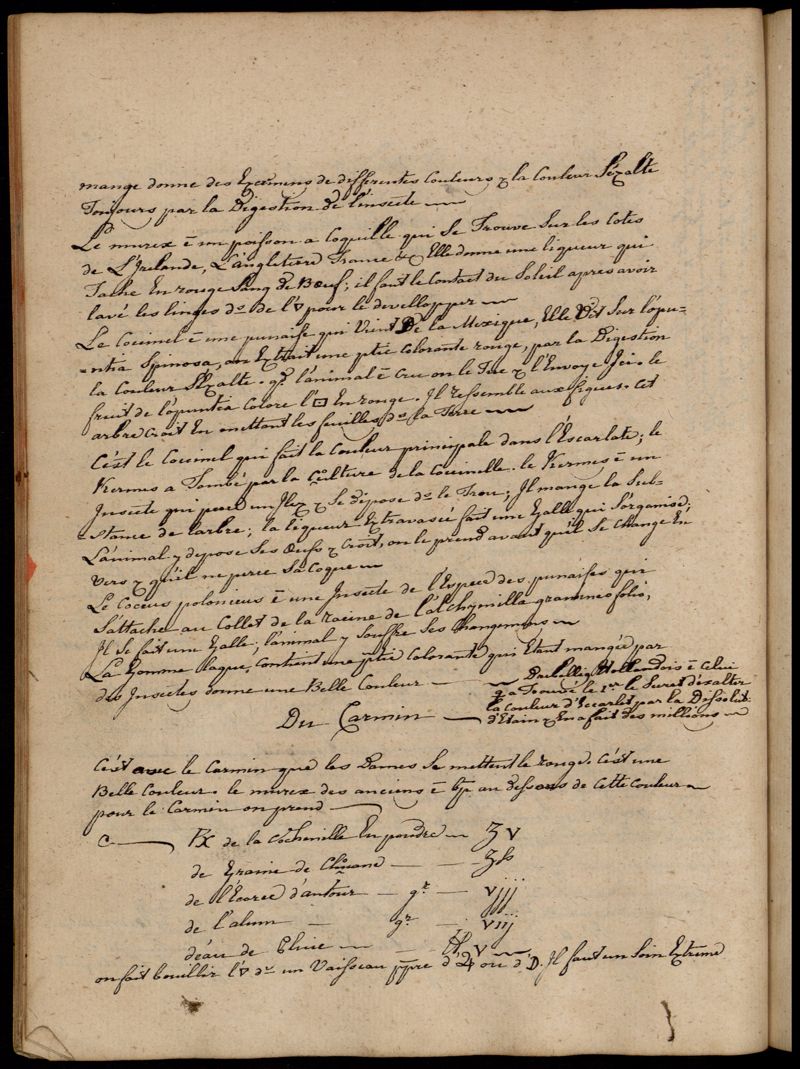 mange donne des Excremens de differentes Couleurs & la Couleur S'éxalte
Toujours par la Digestion de l'insecte
Le murex ē un poisson a Coquille qui se Trouve Sur les Cotes
de L'Irelande, L'angleterre France &c Elle donne une liqueur qui
Tache En rouge Sang de Bœuf; il faut le Contact du Soleil apres avoir
lavé les linges ds de l'▽ pour le devellopper
Le Couinel ē une punaise qui Vient De la Mexique, Elle Vit Sur l'opu-
=ntia Spinosa, on Extrait une ptie Colorante rouge, par la Digestion
la Couleur S'éxalte. qd l'animal ē Cru on le Tue & l'Envoye Ici. le
fruit de l'opuntea Colore l'□ En rouge. Il ressemble aux figues. Cet
arbre Croit En mettant les feuilles ds la Terre
C'est le Couinel qui fait la Couleur principale dans l'Escarlate; le
Kermes a Tombé par la Culture de la Couinelle. le Kermes ē un
Insecte qui perce un Ilex & Se dépose ds le Trou; Il mange la Sub-
=stance de l'arbre; la liqueur Extravasée fait une Galle qui S'organise;
L'animal y depose Ses Œufs & Croit, on le prend avant qu'il Se Change En
vers & qu'il ne perce Sa Coque
Le Coccus polonicus ē une Insecte de l'Espece des punaises qui
S'attache au Collet de la racine de l'alchymilla gramineo folio,
Il Se fait une Galle, l'animal y Souffre Ses Changemens
La Gomme laque, Contient une ptie Colorante qui Etant mangée par
des Insectes donne une Belle Couleur
Hollandois ē Celui
q. a Trouvé le 1er le Secret d'éxalter
la Couleur d'Eccarlet par la Dissolut.
d'Etain & En a fait des millions
Du Carmin
C'est avec le Carmin que les Dames Se mettent le rouge. C'est une
Belle Couleur. le murex des anciens ē bp. au dessous de Cette Couleur
pour le Carmin on prend
C ℞ de la Cochenille En poudre ʒ V
de Graine de Chouane ʒß
de l'Ecorce d'autour gr. viij
de l'alum gr. viij
d'eau de Pluie ℔ V
on fait bouillir l'▽ ds un Vaisseau ppre d'♃ ou d'D. Il faut un Soin Extreme